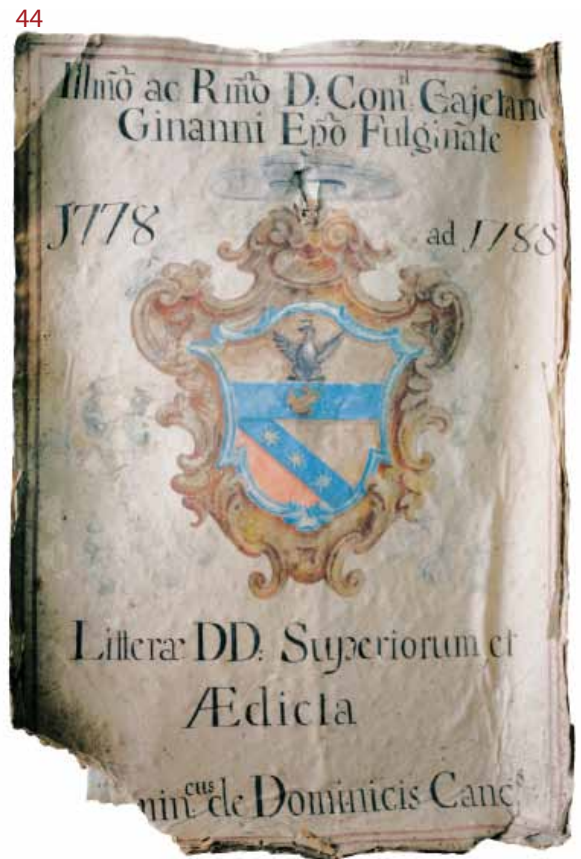 44
Illmō ac Rmō D: Com: Gajetano
Ginanni Epō Fulgināte
1778 ad 1788
Litteræ DD: Superiorum et
Ædicta
de Dominicis Canc.s